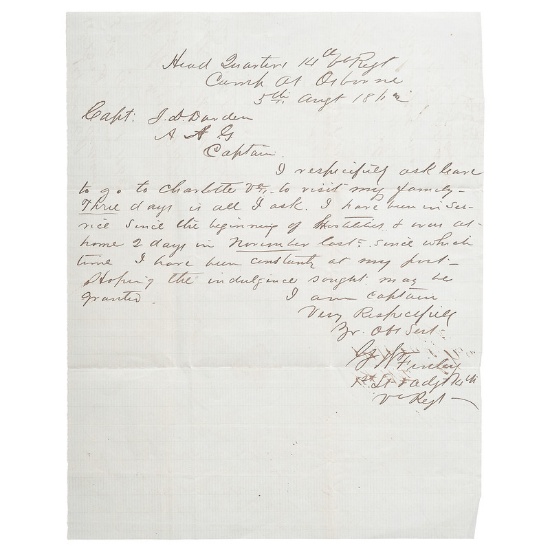 Head Quarters 14th Va Regt
Camp at Osborne
5th Augt 1862
Capt: J. D. Darden
A A G
Captain
I respecifully ask leave
to go to Charlotte Va. to visit my family-
Three days is all I ask. I have been in Ser-
vice since the beginning of Hostilities & was at
home 2 days in November last- since which
time I have been constantly at my post-
Hoping the indulgence sought may be
granted
I am Captain
Very Respecifully
Yr. Obt Svt.
Finley
1st Lt & Adjt 14th
Va Regt